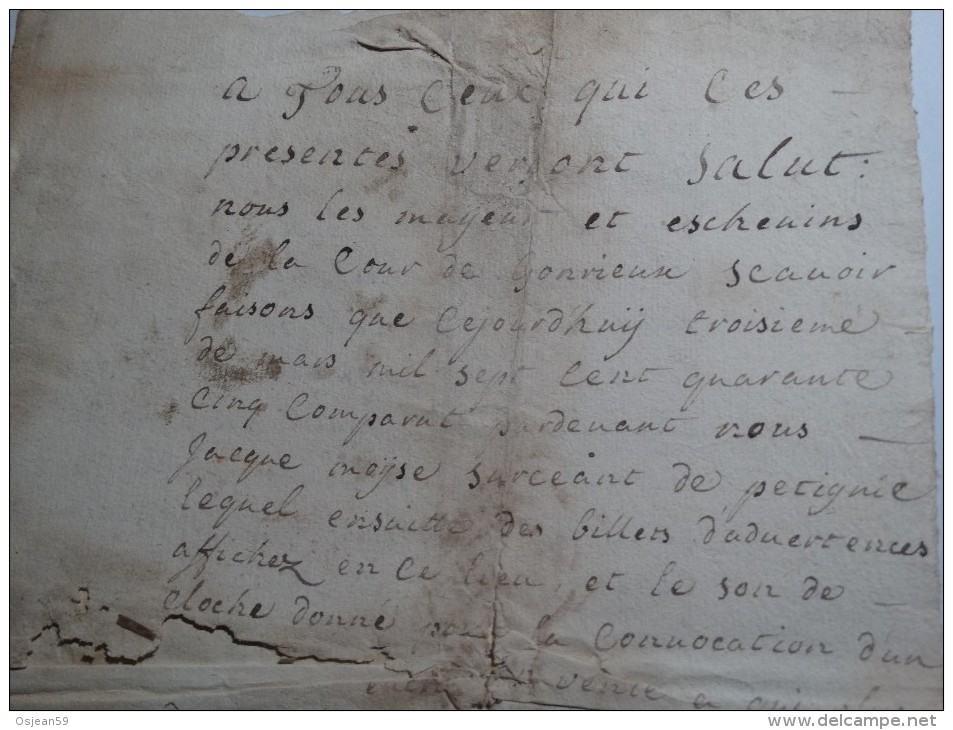 a Tous Ceux qui Ces –
presentes verront Salut :
nous les mayeur et escheuins
de la Cour de Gonrieux scauoir
faisons que Cejourdhuÿ troisieme –
de mars mil sept Cent quarante
Cinq Comparut pardeuant nous –
Jacque moÿse surceant de petignie
lequel ensuitte des billets d'aduertences
affichez en Ce lieu, et le son de –
cloche donné pour la Convocation d'un
venie a qui
Osjean59
www.delcampe.net